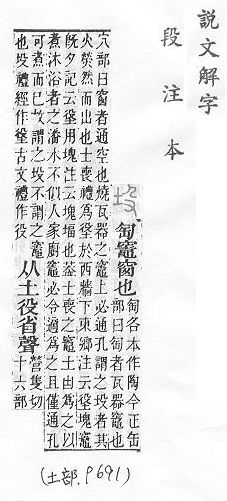 說文解字
段注本
坄 匋竈窗也匋各本作陶今正缶部曰匋者瓦器竈也
穴部曰窗者通空也燒瓦器之竈上必通孔謂之坄者其
火熒然而出也士喪禮爲垼於西牆下東鄉注云垼塊竈
旣夕記云垼用塊注云塊堛也葢士喪之竈土由爲之以
煮沐浴者之潘水不似人家廚竈必令適爲之且僅通孔
可煮而巳故謂之坄不謂之竈
也坄禮經作垼古文禮作役 从土役省聲營隻切十六部
(土部.P691)